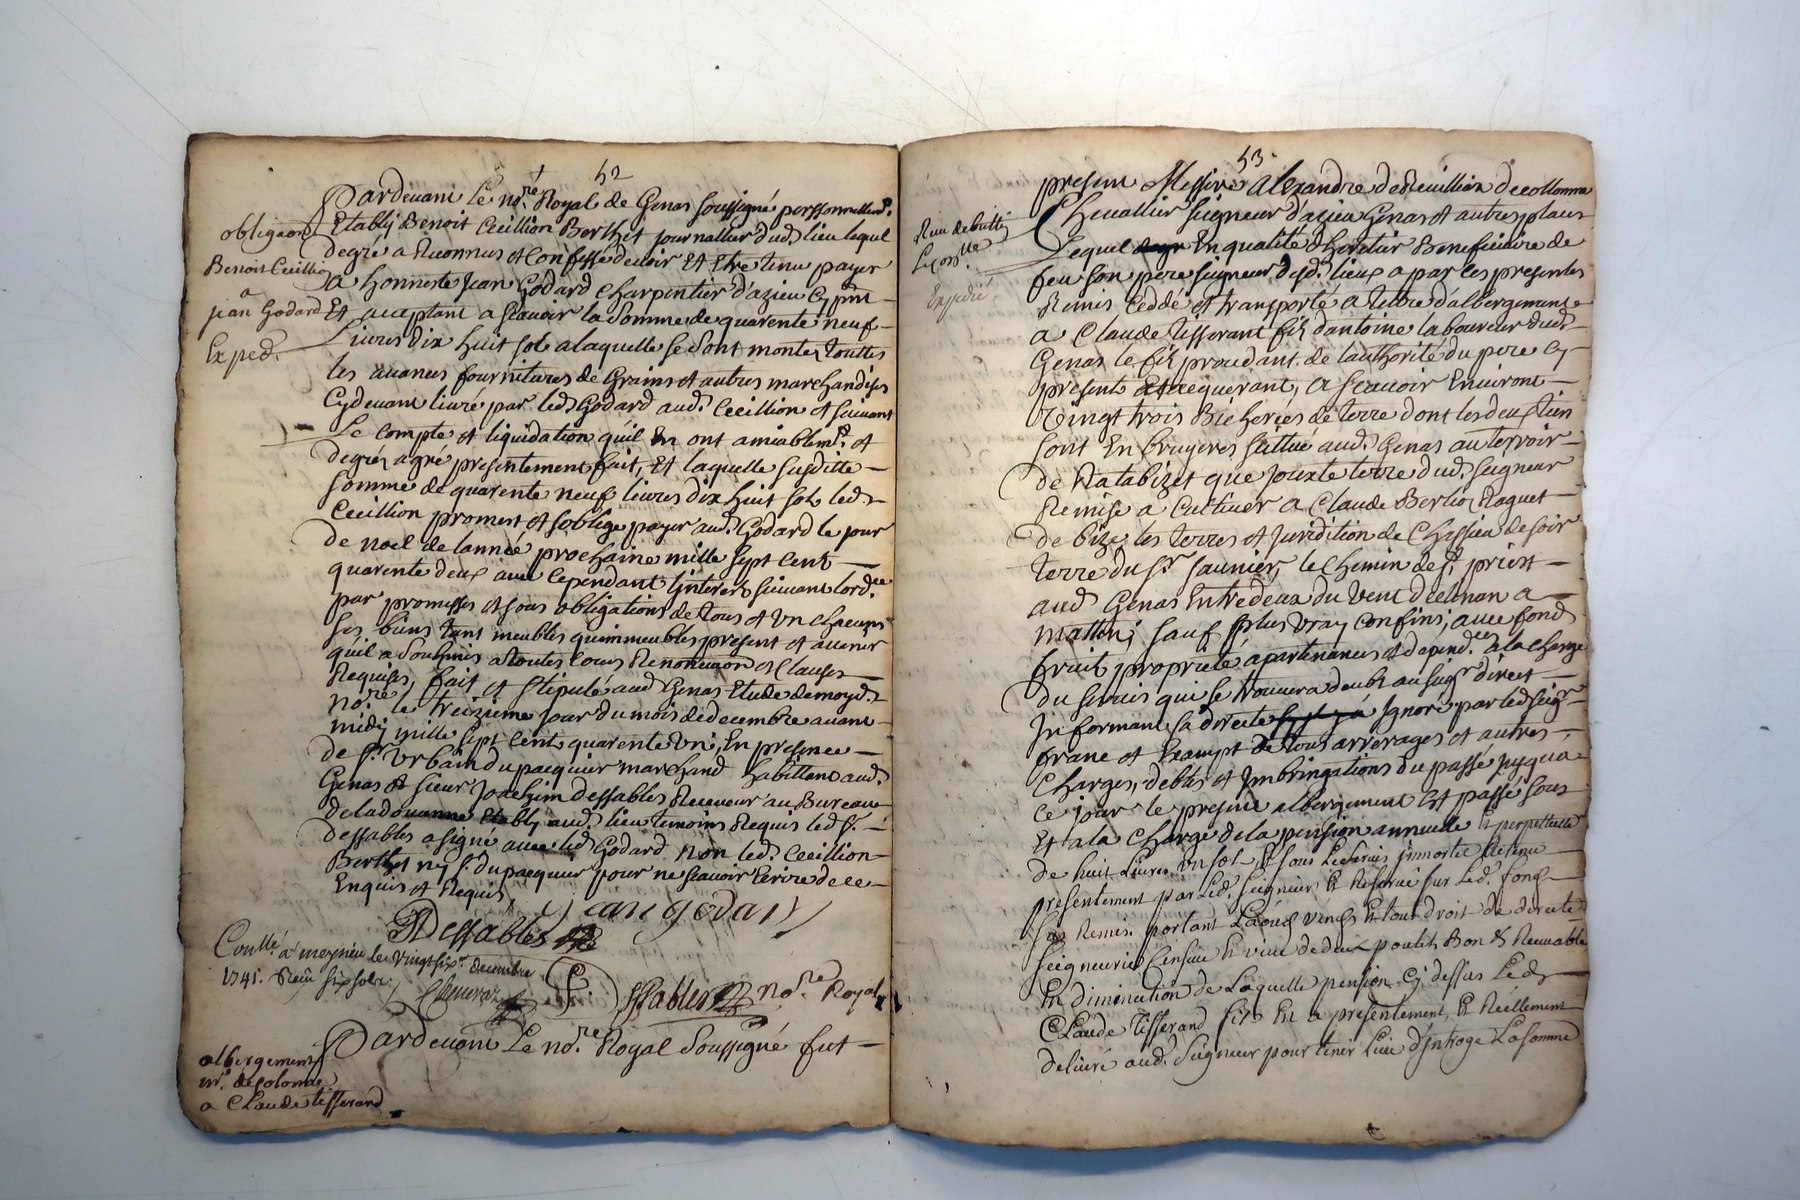 52
Pardevant Le no.re Royal de Genas soussigné personnellemt.
Etably Benoit Cecillion Berthet journallier dud. lieu lequel
degré a Reconnus et Confessé devoir Et Etre tenu payer
a honneste Jean Godard Charpentier d'azieu Cy pnt
Et aceptant a scavoir la somme de quarente neuf
Livres dix huit sols a laquelle se sont montés touttes
les avances fournitures de Grains et autres marchandises
Cydevant livré par led. Godard aud. Cecillion et suivant
Le compte et liquidation qu'il En ont amiablemt. et
degrés agré presentement fait, Et laquelle susditte
somme de quarente neuf livres dix huit sols led.
Cecillion promest et soblige payer aud. Godard le jour
de noel de lannée prochaine mille sept cent
quarente deux avec Cependant linterest suivant lord.ce
par promesses et sous obligations de tous et un chacuns
ses biens tant meubles quimmeubles present et avenir
quil a Soubmis a toutes Cours Renonciaon et Clauses
Requises, fait et stipulé aud Genas Etude de moyd.
no.re le treizieme jour du mois de decembre avant
midy mille sept cent quarente un, En presence
de sr. Urbain dupacquier marchand habittant aud.
Genas et sieur Joachim dessables Receveur au Bureau
de la douanne Etably aud. lieu temoins Requis led. sr.
Dessables a signé avec led Godard Non led. Cecillion
Berthet ny sr. dupacquier pour ne scavoir Ecrire de ce
Enquis et Requis
Jean godard
Dessables
obligaon
Benoit Cecillion
a
jean Godard
Exped.
Con.llé a meyzieu le vingt six.e decembre
1741. Receu six sols
no.re Royal
Pardevant Le no.re Royal Soussigné fut
albergement
mr. de Colonne
a Claude tisserand
53
present Messire Alexandre de Reuillion de collonne
Chevallier seigneur d'azieu Genas et autres places
Lequel En qualité d'heretier Beneficiaire de
feu son pere seigneur desd. lieux a par ces presentes
Remis Ceddé et transporté a tittre d'albergement
a Claude tisserant fils d'antoine laboureur dud.
Genas le fils procedant de lauthorité du pere Cy
presents et requerant, a scavoir Environt
Vingt trois Bicherées de terre dont les deux tiers
sont En bruyeres scittué aud. Genas au terroir
de Ratabizet que jouxte terre dud. seigneur
Remise a Cultiver a Claude Berlioz Raquet
de bize les terres et juridition de Chassieu de soir
terre du sr. saunier, le chemin de st. priest
aud Genas Entredeux du vent declinan a
mattin, sauf plus vray confins, avec fond
fruit propriété apartenances et depend.ces a la charge
du servis qui se trouvera deub au seigr. direct
Informant sa directe ignoré par led. seigr.
franc et Exampt de tous arrerages et autres
Charges, debtes et Imbringations du passé jusqua
ce jour le present albergement Est passé sous
Et a la Charge de la pension annuelle Et perpettuelle
de huit Livres un sol, Et sous Le servis
presentement par Led. Seigneur Et Reservé sur Led. fonds
Remis portant Laods vends Et tout droit de directe
seigneurie Censive Bon Et Recevable
En diminution de Laquelle pension Cy dessus Led.
Claude tisserand fils En a presentement Et Réellement
delivré aud. Seigneur pour tenir Lieu d'Introge La somme
Expedié